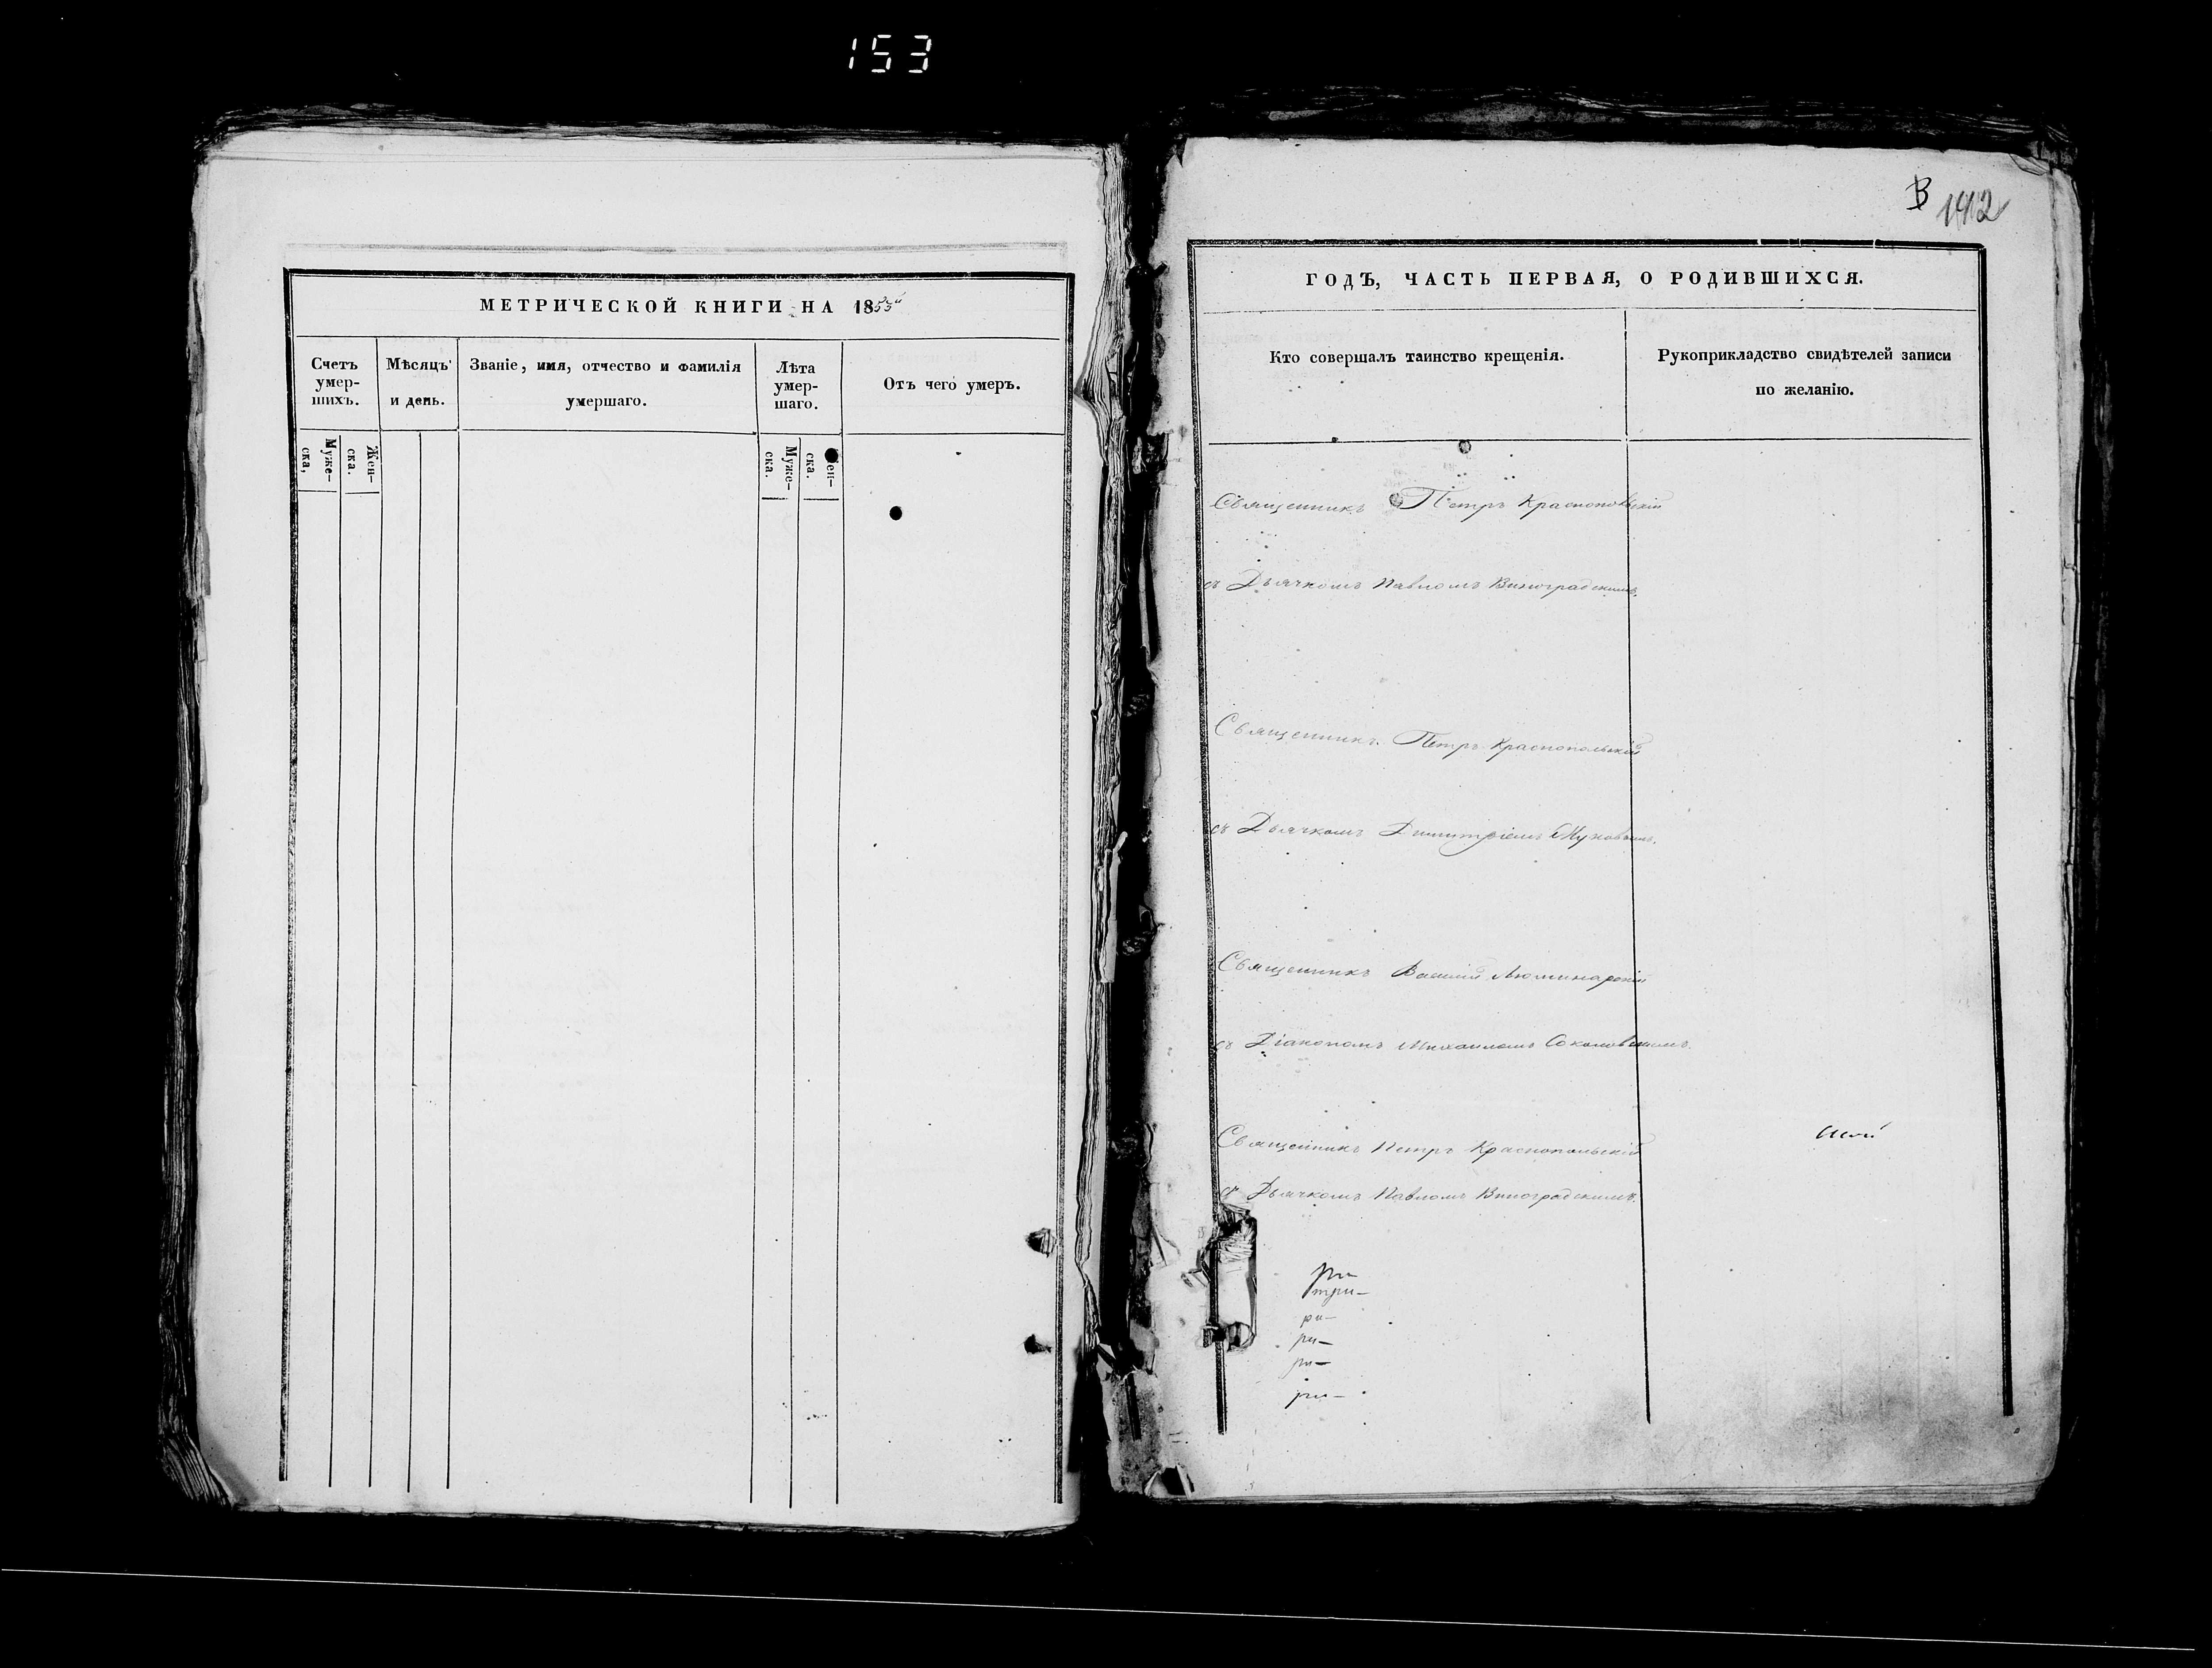 153
МЕТРИЧЕСКОЙ КНИГИ НА 1853й
Счетъ умер-шихъ.
Мѣсяцъ и день.
Званіе, имя, отчество и фамилія умершаго.
Лѣта умер-шаго.
Отъ чего умеръ.
Муже-ска,
Жен-ска.
Муже-ска.
Жен-ска.
142
ГОДЪ, ЧАСТЬ ПЕРВАЯ, О РОДИВШИХСЯ.
Кто совершалъ таинство крещенія.
Рукоприкладство свидѣтелей записи
по желанію.
Священникъ Петръ Краснопольскій
съ Дьячкомъ Павломъ Виноградскимъ.
Священникъ Петръ Краснопольскій
съ Дьячкомъ Димитріемъ
Священникъ Василій Люминарскій
съ Діакономъ Михаиломъ Соколовскимъ.
Священникъ Петръ Краснопольскій
съ Дьячкомъ Павломъ Виноградскимъ.
ри-
три-
ри-
ри-
ри-
ри-